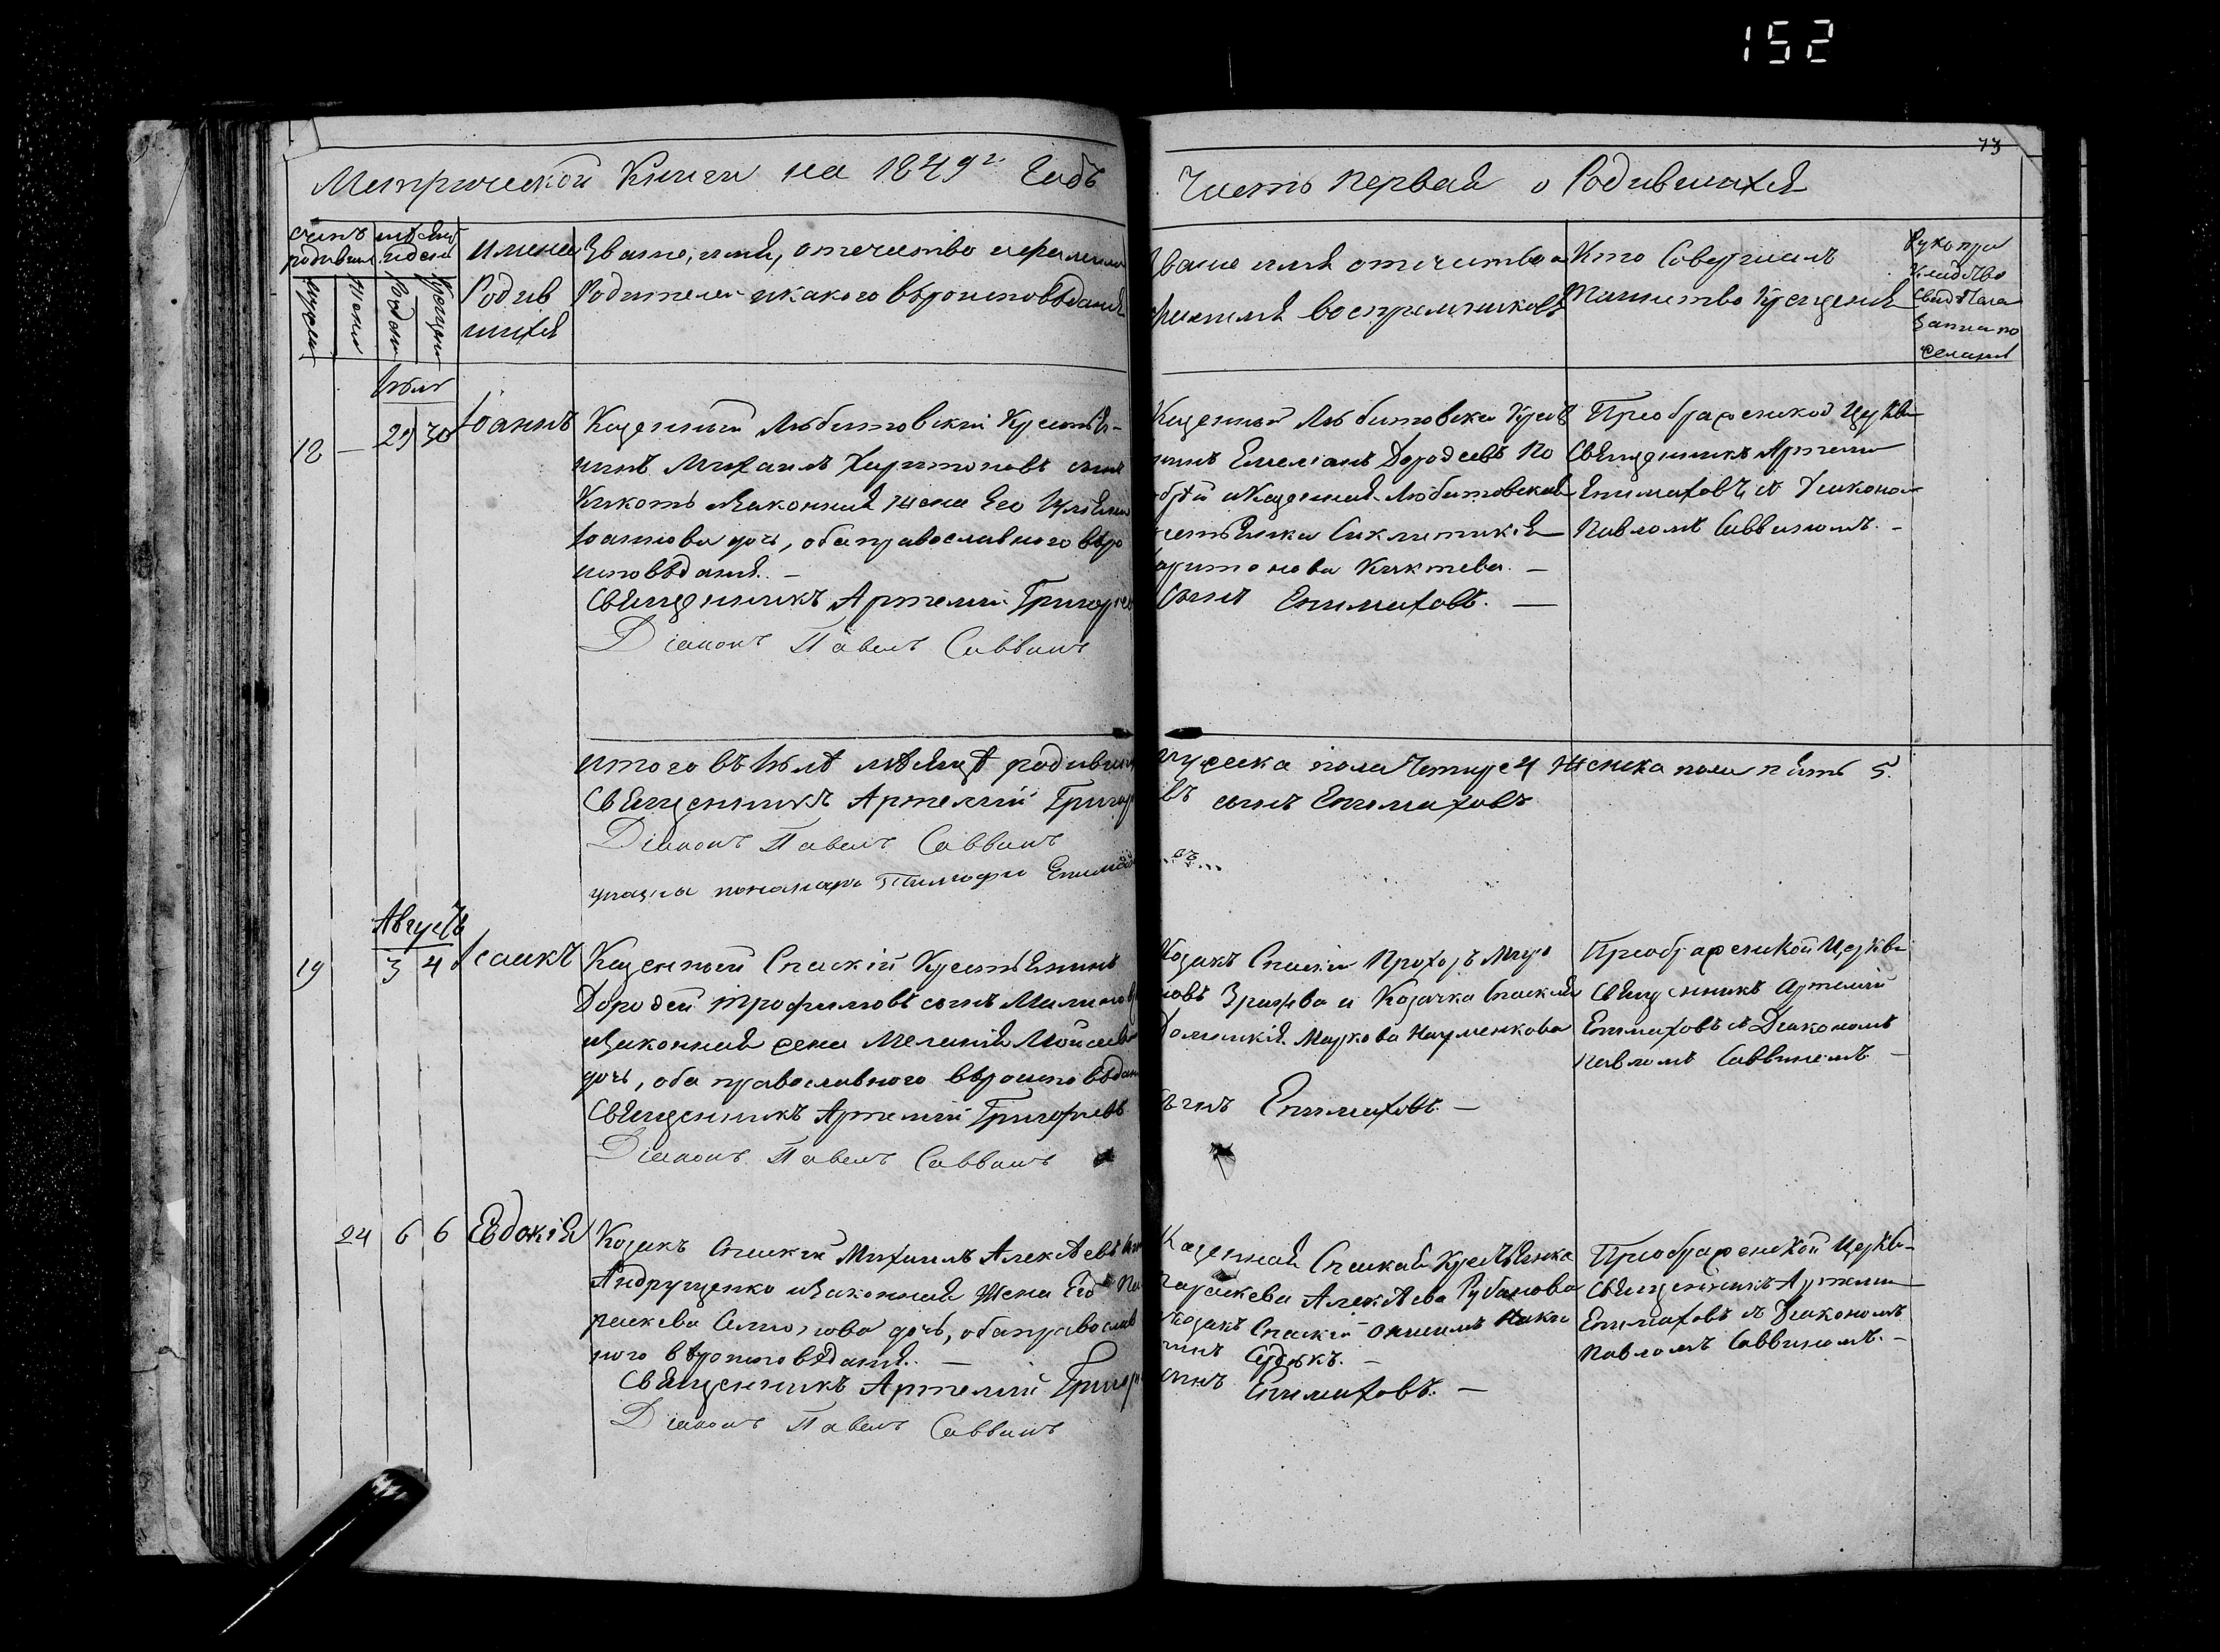 152
73
Метрической Книги на 1849г. Годъ
Часть первая о Родившихся
имена
Родив
шихся
Званіе, имя, отечество и фамилия
Родителей и какого вѣроисповѣданія
Званіе имя отечество и
фамилия воспріемниковъ
Кто Совершилъ
Таинство Крещенія
Рукопри
кладство
Свидѣтеле
записи по
желанію
Іюль
18 — 29 30 Іоаннъ
Казенный Любитовскій Крестья-
нинъ Михаилъ Харитоновъ сынъ
Кикоть и Законная жена Его
Іоаннова дочь, оба православнаго вѣро
исповѣданія. —
Священникъ Артемій Григорьев
Діаконъ Павелъ Саввинъ
Казенный Любитовскій Крест
нинъ Емеліанъ Дородеевъ По
и Казенная Любитовская
Харитонова Кикотева. —
сынъ Епимаховъ. —
Преображенской Церкви
Священникъ Артемій
Епимаховъ съ Діакономъ
Павломъ Саввиномъ. —
Итого въ Іюлѣ мѣсяцѣ родивши
Священникъ Артемій Григор
Діаконъ Павелъ Саввинъ
пономарь Тимофей Епимах
мужеска пола Четыре 4 Женска пола пять 5.
въ сынъ Епимаховъ
Августъ
19 3 4 Ісаакъ
Казенный Спаскій Крестьянинъ
Дородей Трофимовъ сынъ
и Законная жена Меланія Мойсеева
дочь, оба православного вѣроисповѣдан
Священникъ Артемій Григорьевъ
Діаконъ Павелъ Саввинъ
Козакъ Спаскій Прохоръ
и Козачка Спаская
Домникія Маркова Науменкова
сынъ Епимаховъ. —
Преображенской Церкви
Священникъ Артемій
Епимаховъ съ Діакономъ
Павломъ Саввиномъ —
24 6 6 Евдокія
Козакъ Спаскій Михаилъ Алексѣевъ сын
Андрущенко и Законная Жена Его Па
раскева Симонова дочь, оба православ
ного вѣроисповѣданія. —
Священникъ Артемій Григор
Діаконъ Павелъ Саввинъ
Казенная Спаская Крестьянка
Параскева Алексѣева Рубанова
Козакъ Спаскій Онисимъ
сынъ Епимаховъ. —
Преображенской Церкви
Священникъ Артемій
Епимаховъ съ Діакономъ
Павломъ Саввиномъ. —